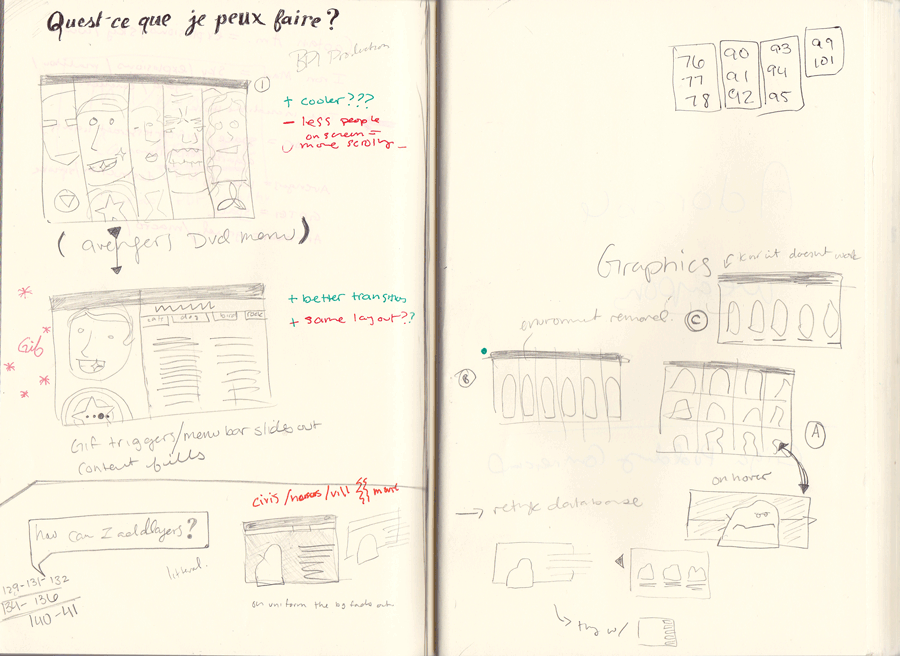 Quest-ce que je peux faire?
BPI Production
①
+ cooler???
– less people
on screen =
more scrolling
(avengers Dvd menu)
+ better transitions
+ same layout??
dog
bird
Gif
Gif triggers/menu bar slides out
content fills
civis/heroes/vill
movie
how can I add layers?
literal.
129-131-132
134-136
140-41
on uniform the bg fade out
76
77
78
90
91
92
93
94
95
99
101
Graphics
kinrit doesnt work
C
environment removed.
B
A
on hover
→ retype database
try w/